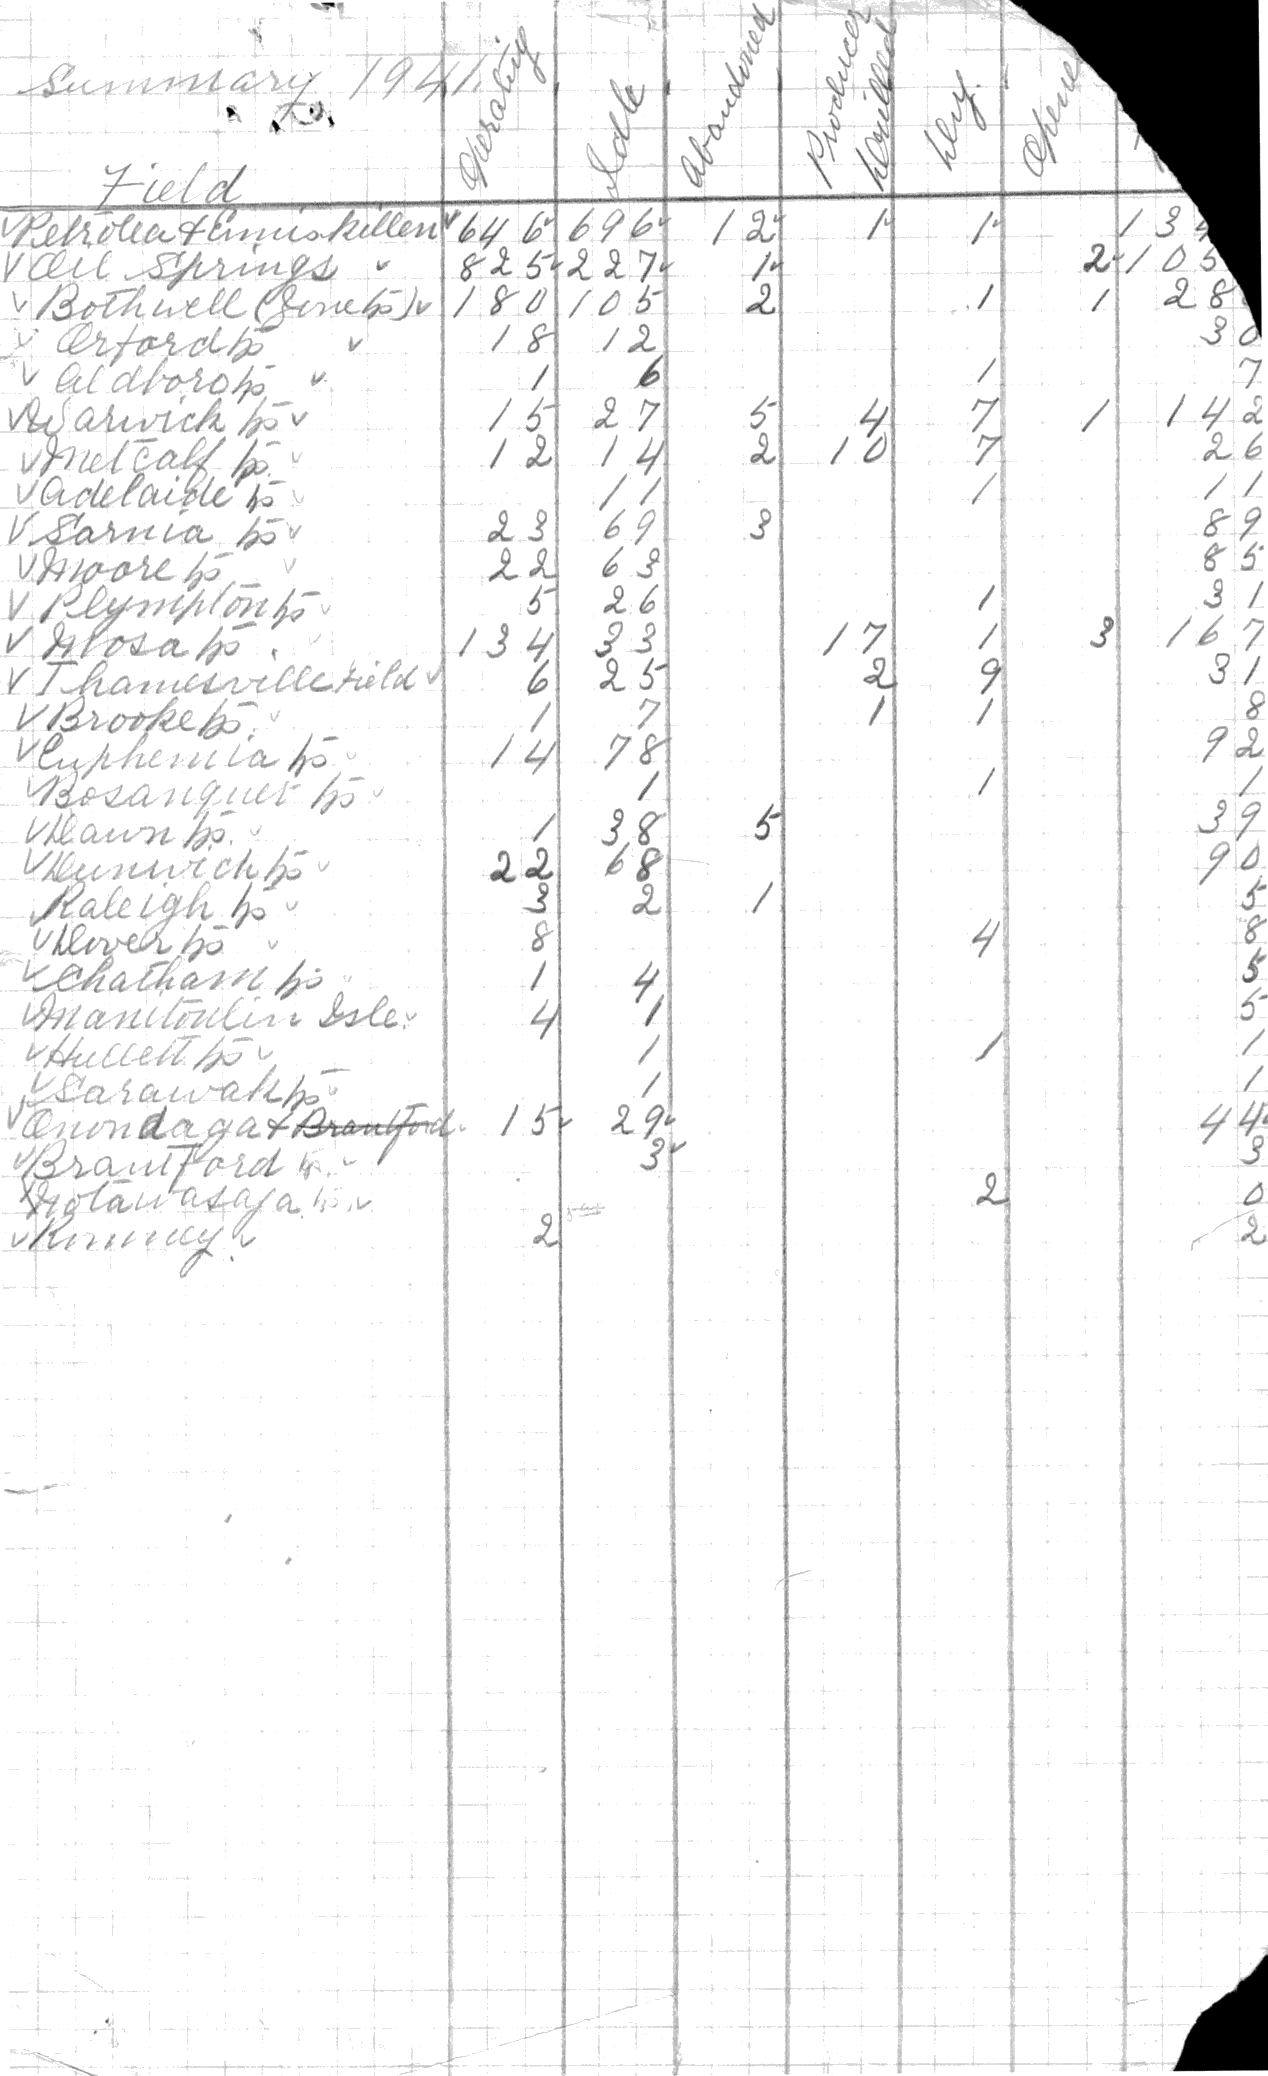 Summary 1941.
Field Operating Idle Abandoned Producer Drilled Dry. Opene
Petrolea & Enniskillen 646 696 12 1 1 134
Oil Springs 825 227 1 2 105
Bothwell (Zone tp) 180 105 2 1 1 28
Orford tp 18 12 30
Aldboro tp 1 6 1 7
Warwick tp 15 27 5 4 7 1 142
Metcalf tp. 12 14 2 10 7 26
Adelaide tp 11 1 11
Sarnia tp 23 69 3 89
Moore tp 22 63 85
Plympton tp 5 26 1 31
Mosa tp. 134 33 17 1 3 167
Thamesville Field 6 25 2 9 31
Brooke tp. 1 7 1 1 8
Euphemia tp 14 78 92
Bosanquet tp 1 1 1
Dawn tp. 1 38 5 39
Dunwich tp 22 68 90
Raleigh tp 3 2 1 5
Dover tp 8 4 8
Chatham tp 1 4 5
Manitoulin Isle. 4 1 5
Hullett tp 1 1 1
Sarawak tp 1 1
Onondaga & Brantford 15 29 44
Brantford tp. 3 3
Notawasaga tp. 2 0
Romney. 2 2